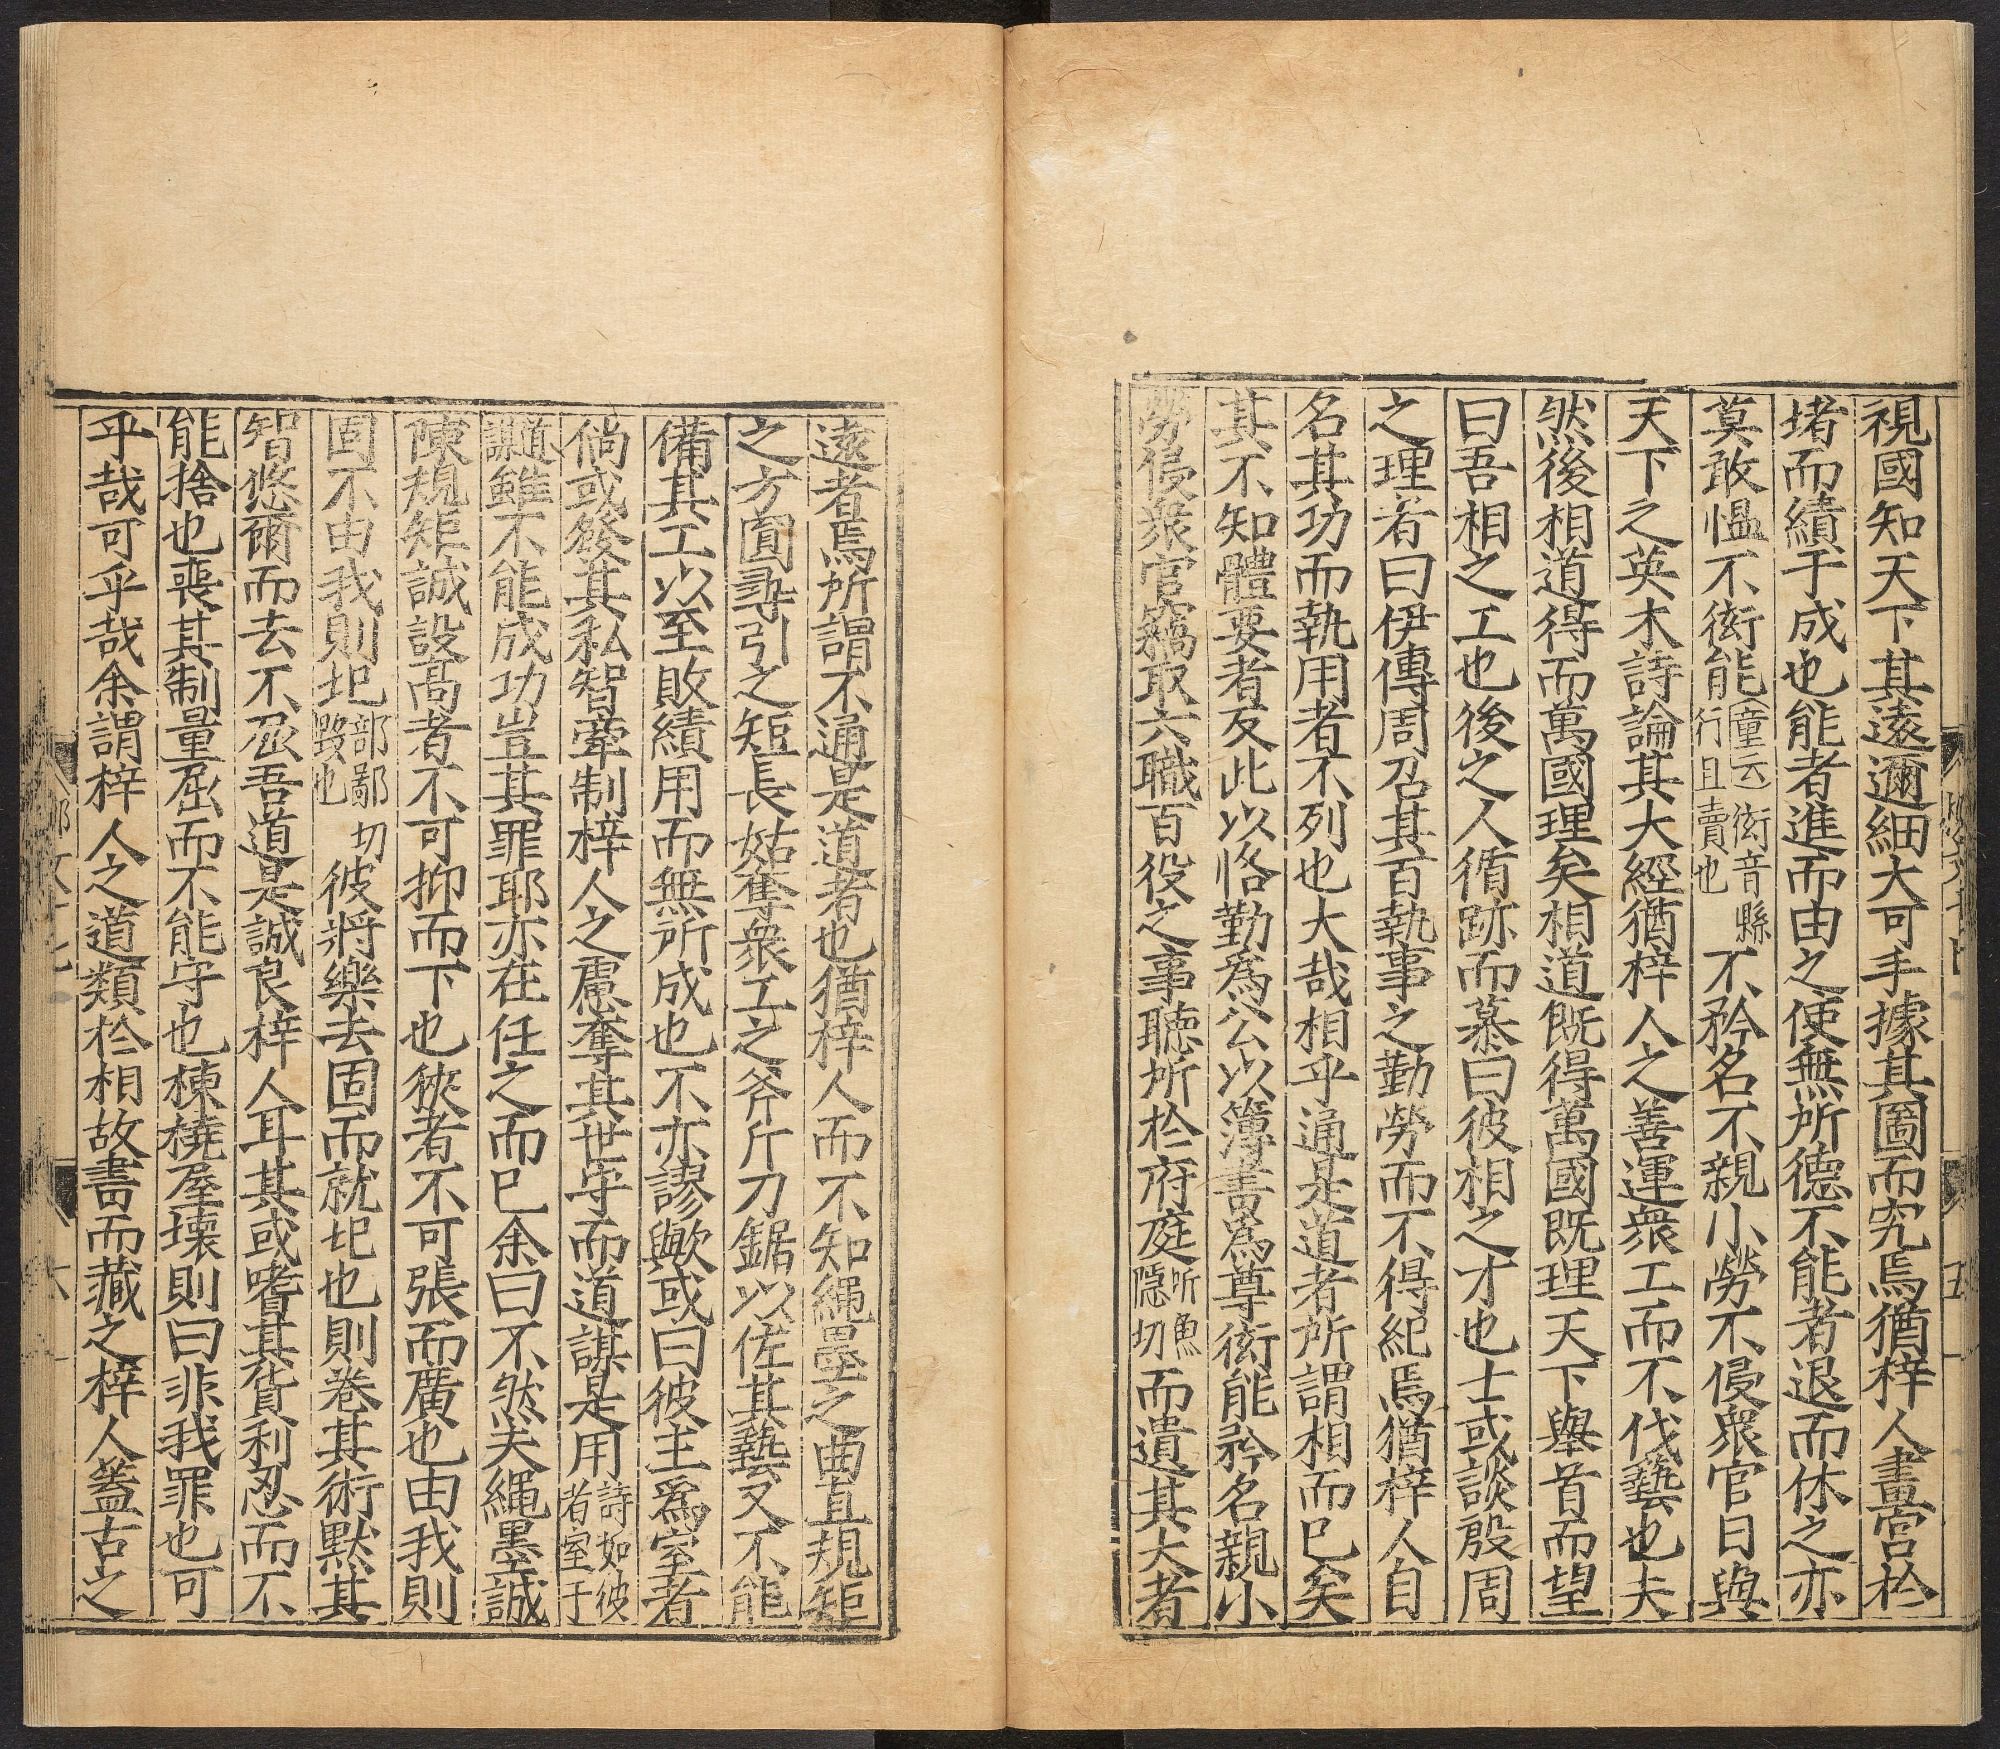 視國知天下其遠邇細大可手據其圖而究焉猶梓人畫宮於
堵而績于成也能者進而由之使無所德不能者退而休之亦
莫敢慍不衒能童云衒音縣行且賣也不矜名不親小勞不侵衆官日與
天下之英木詩論其大經猶梓人之善運衆工而不伐藝也夫
然後相道得而萬國理矣相道既得萬國既理天下舉首而望
曰吾相之工也後之人循跡而慕曰彼相之才也士或談殷周
之理者曰伊傅周召其百執事之勤勞而不得紀焉猶梓人自
名其功而執用者不列也大哉相乎通是道者所謂相而已矣
其不知體要者反此以恪勤為公以簿書為尊衒能矜名親小
勞侵衆官竊取六職百役之事聽所於府庭听魚隱切而遺其大者
遠者焉所謂不通是道者也猶梓人而不知繩墨之曲直規矩
之方圓尋引之短長姑奪衆工之斧斤刀鋸以佐其藝又不能
備其工以至敗績用而無所成也不亦謬歟或曰彼主為室者
倘或發其私智牽制梓人之慮奪其世守而道謀是用詩如彼者室于
道謀雖不能成功豈其罪耶亦在任之而已余曰不然夫繩墨誠
陳規矩誠設高者不可抑而下也狹者不可張而廣也由我則
固不由我則圮部鄙切毀也彼將樂去固而就圮也則卷其術默其
智悠爾而去不屈吾道是誠良梓人耳其或嗜其貨利忍而不
能捨也喪其制量屈而不能守也棟橈屋壞則曰非我罪也可
乎哉可乎哉余謂梓人之道類於相故書而藏之梓人蓋古之